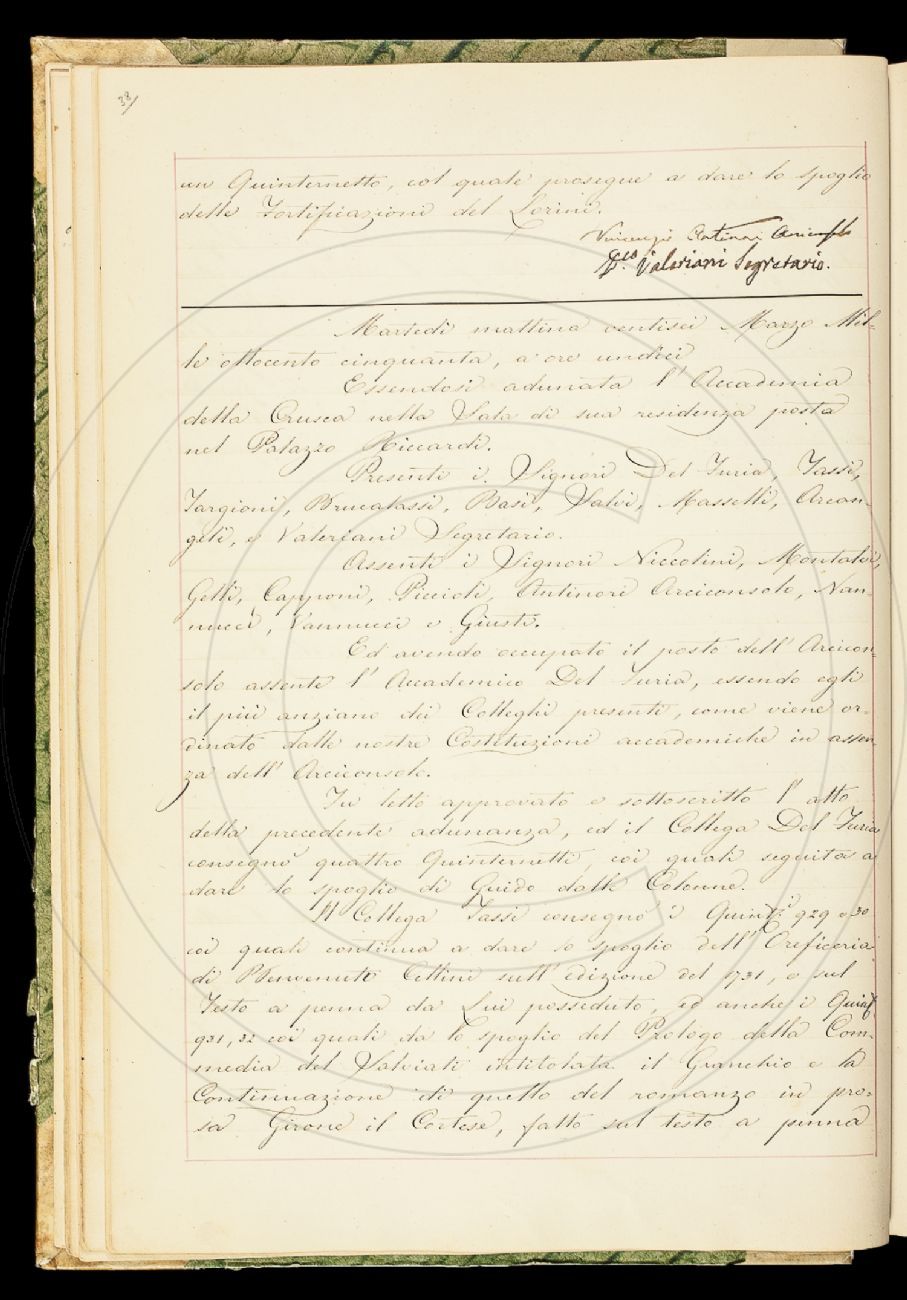 38/
un Quinternetto, col quale prosegue a dare lo spoglio
delle Fortificazioni del Lorini.
Vincenzio Antinori Arciconsolo
Valeriani Segretario.
Martedì mattina ventisei Marzo Mil-
le ottocento cinquanta, a ore undici
Essendosi adunata l' Accademia
della Crusca nella Sala di sua residenza posta
nel Palazzo Riccardi.
Presenti i Signori Del Furia, Tassi,
Targioni, Brucalassi, Basi, Salvi, Masselli, Arcan-
geli, e Valeriani Segretario.
Assenti i Signori Niccolini, Montalvi,
Gelli, Capponi, Piccioli, Antinori Arciconsolo, Nan-
nucci, Vannucci e Giusti.
Ed avendo occupato il posto dell' Arcicon-
solo assente l' Accademico Del Furia, essendo egli
il più anziano dei Colleghi presenti, come viene or-
dinato dalle nostre Costituzioni accademiche in assen-
za dell' Arciconsolo.
Fu letto approvato e sottoscritto l' atto
della precedente adunanza, ed il Collega Del Furia
consegnò quattro Quinternetti, coi quali seguita a
dare lo spoglio di Guido dalle Colonne.
Il Collega Tassi consegnò i Quint.i 929 e 30
coi quali continua a dare lo spoglio dell' Oreficeria
di Benvenuto Cellini sull' edizione del 1731, e sul
Testo a penna da Lui posseduto, ed anche i Quint.
931, 32 coi quali dà lo spoglio del Prologo della Com-
media del Salviati intitolata il Granchio e la
Continuazione di quello del romanzo in pro-
sa Girone il Cortese, fatto sul testo a penna